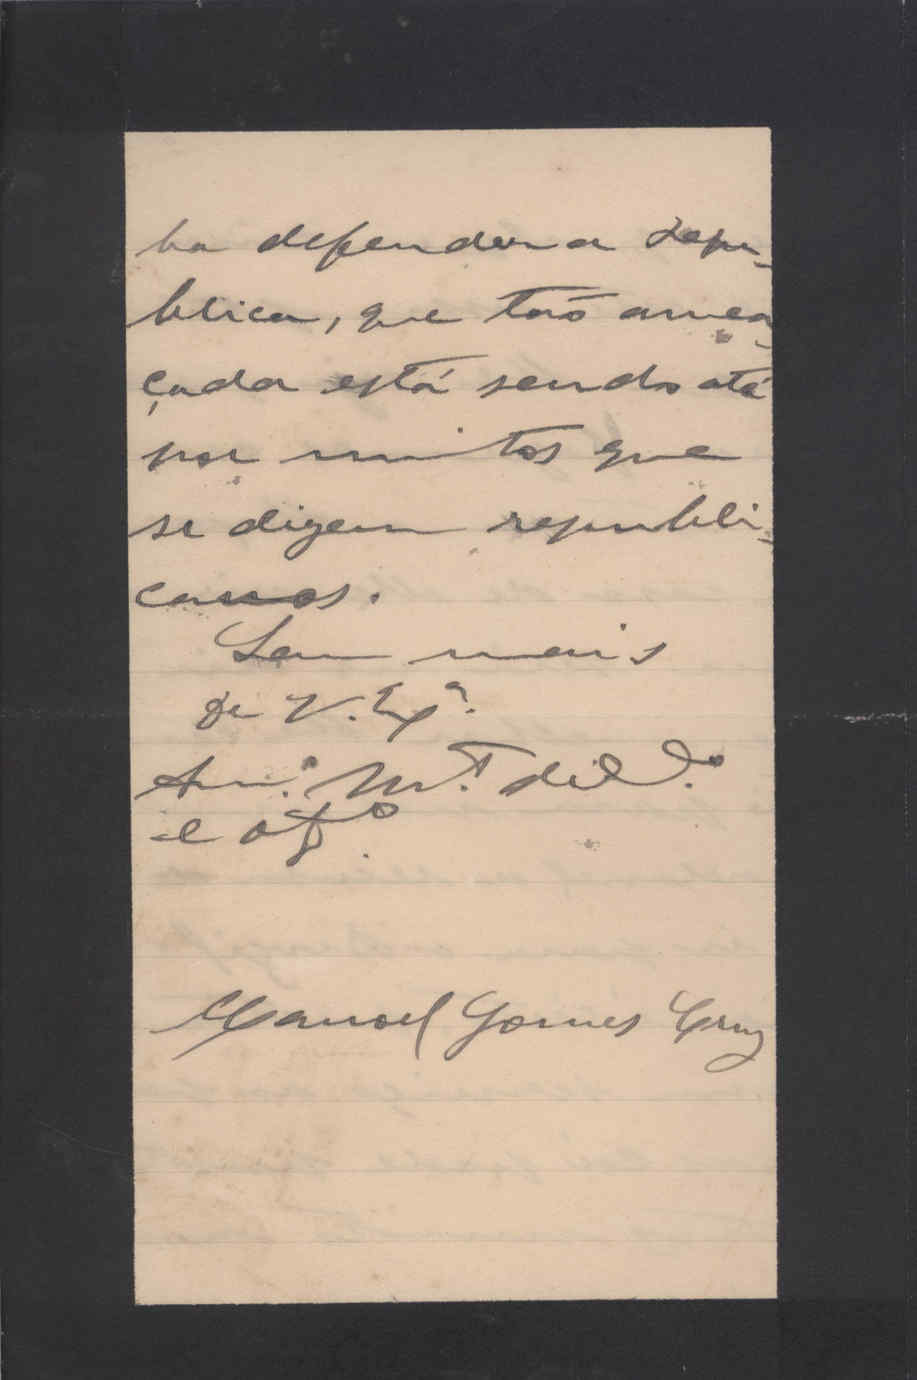 ha defender a Repu-
blica, que taõ amea-
çada está sendo até
por muitos que
se dizem republi-
canos.
Sou mais
De V. Exª.
Am.º Mt.º
e obg.º
Manoel Gomes Cruz